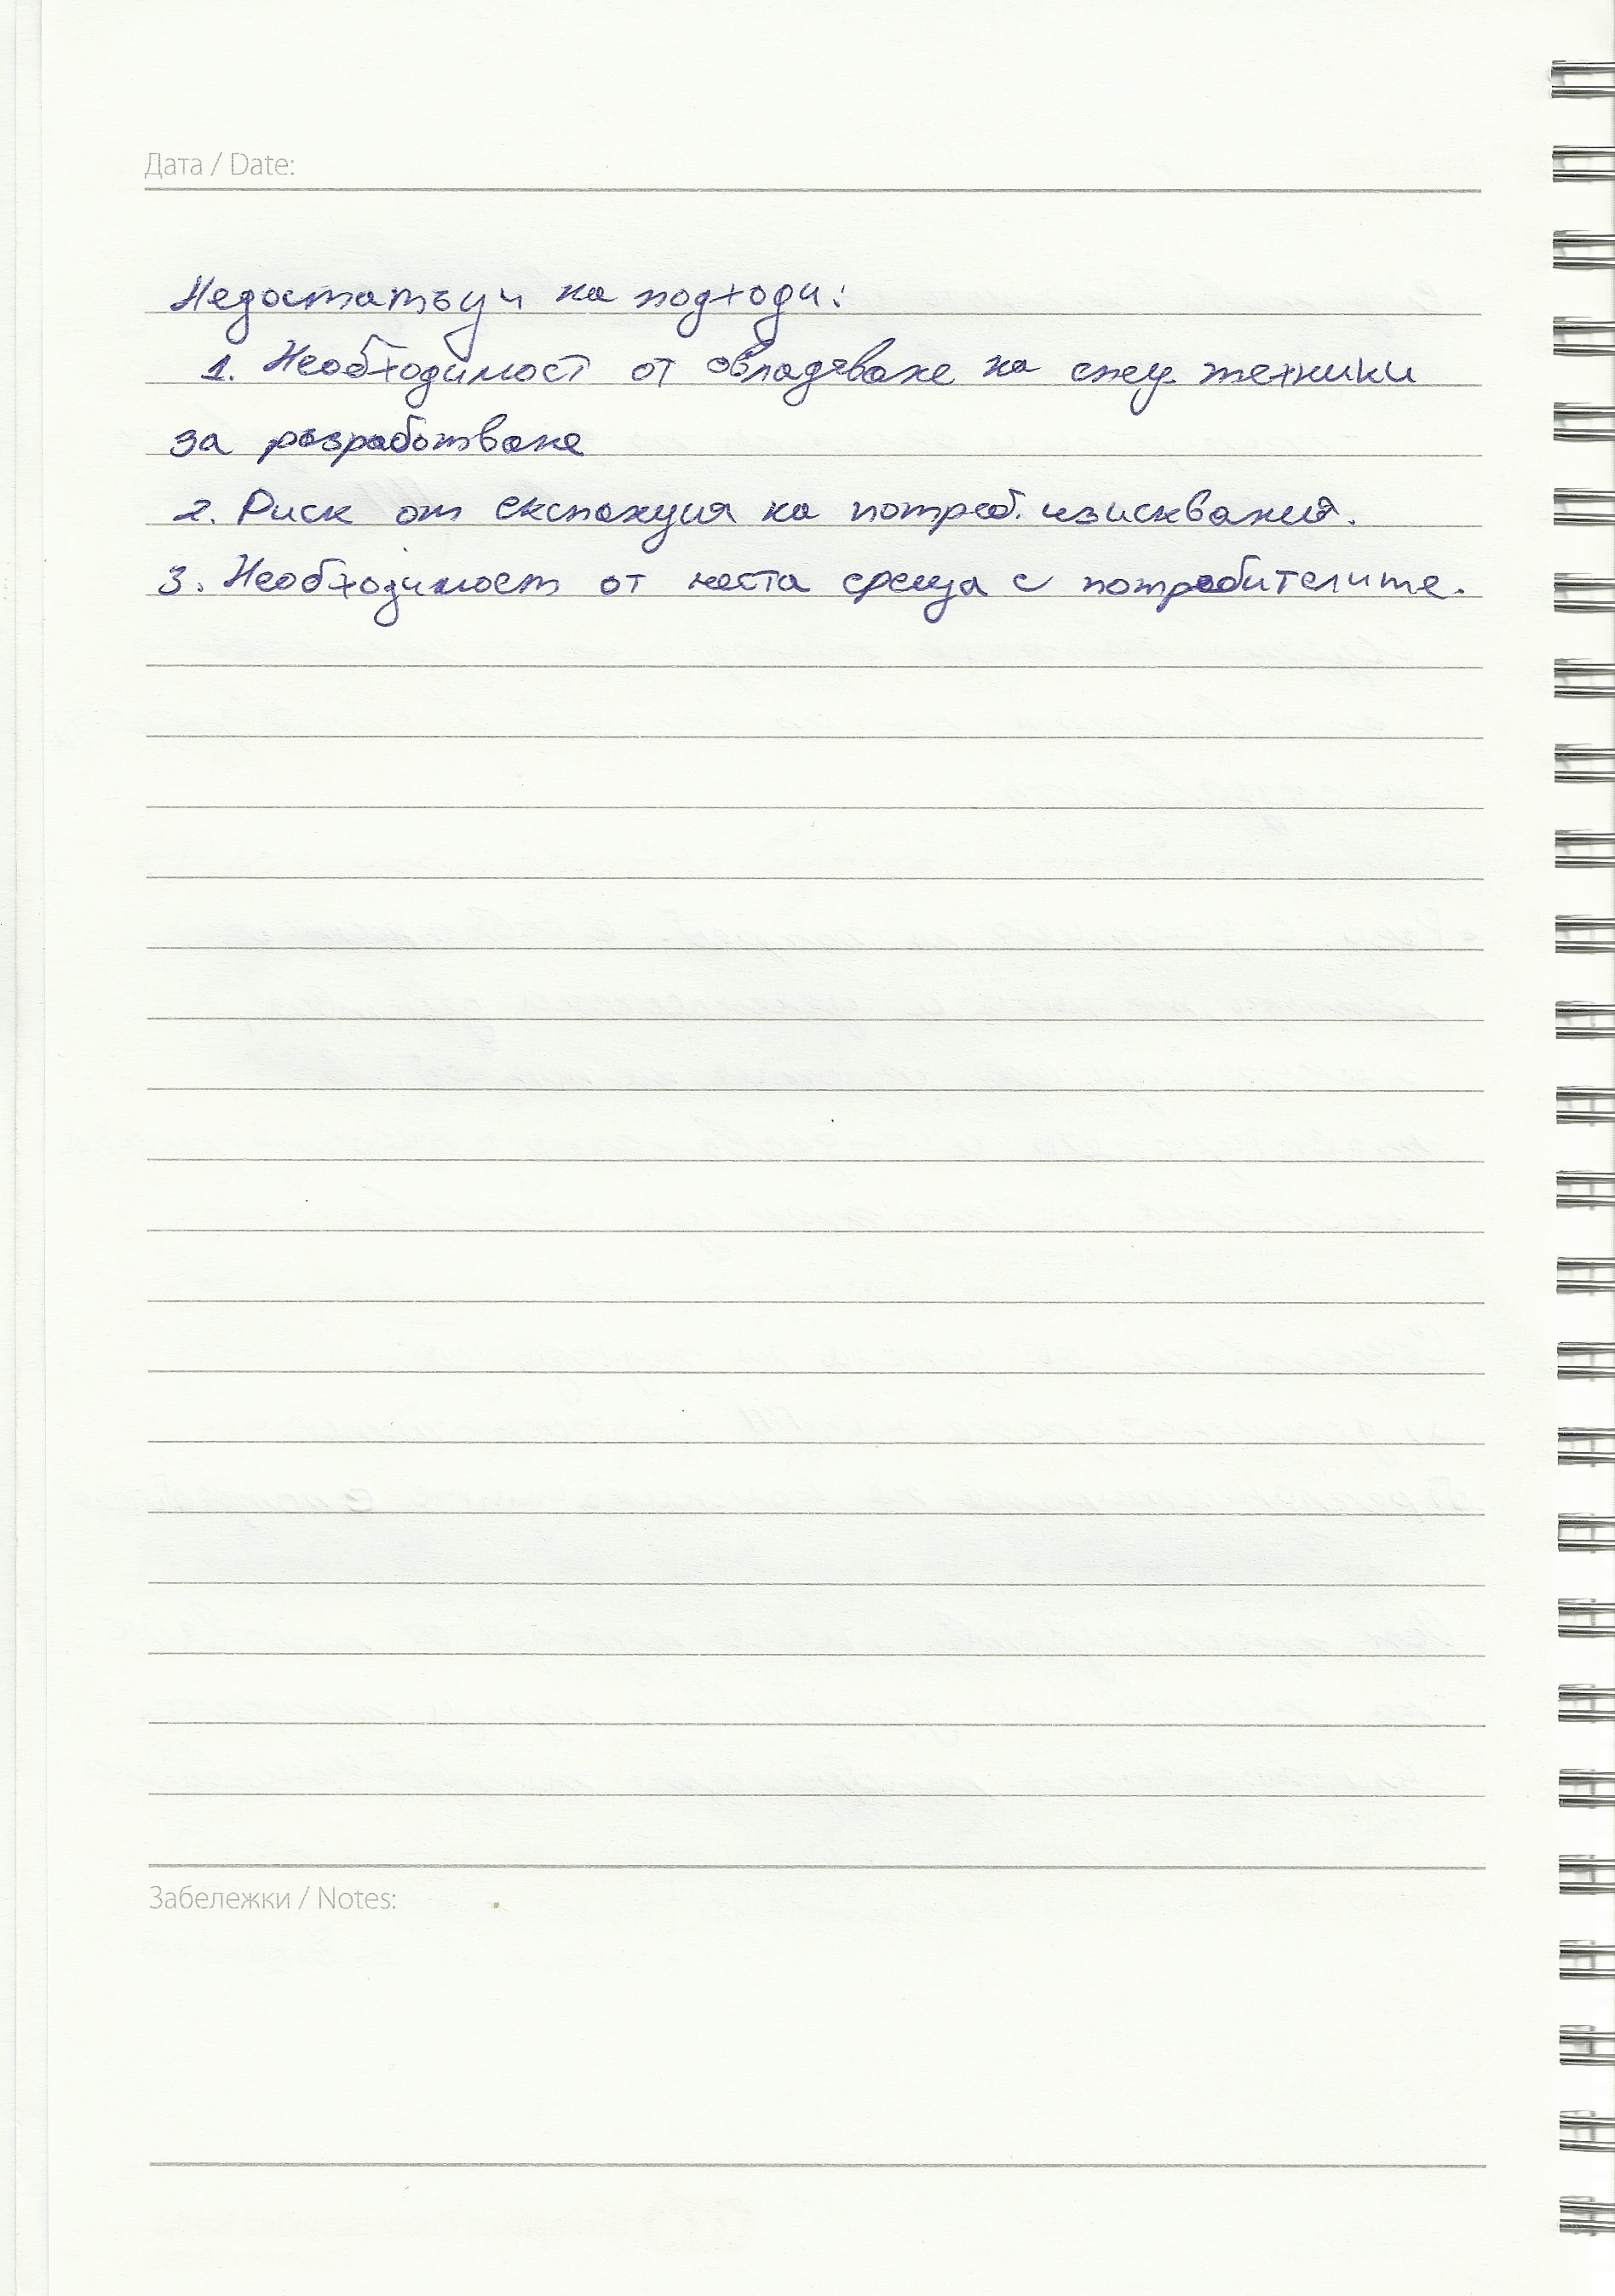 Дата / Date:
Недостатъци на подходи:
1. Необходимост от овладяване на спец. техники
за разработване
2. Риск от експанзия на потреб. изисквания.
3. Необходимост от честа среща с потребителите.
Забележки / Notes: